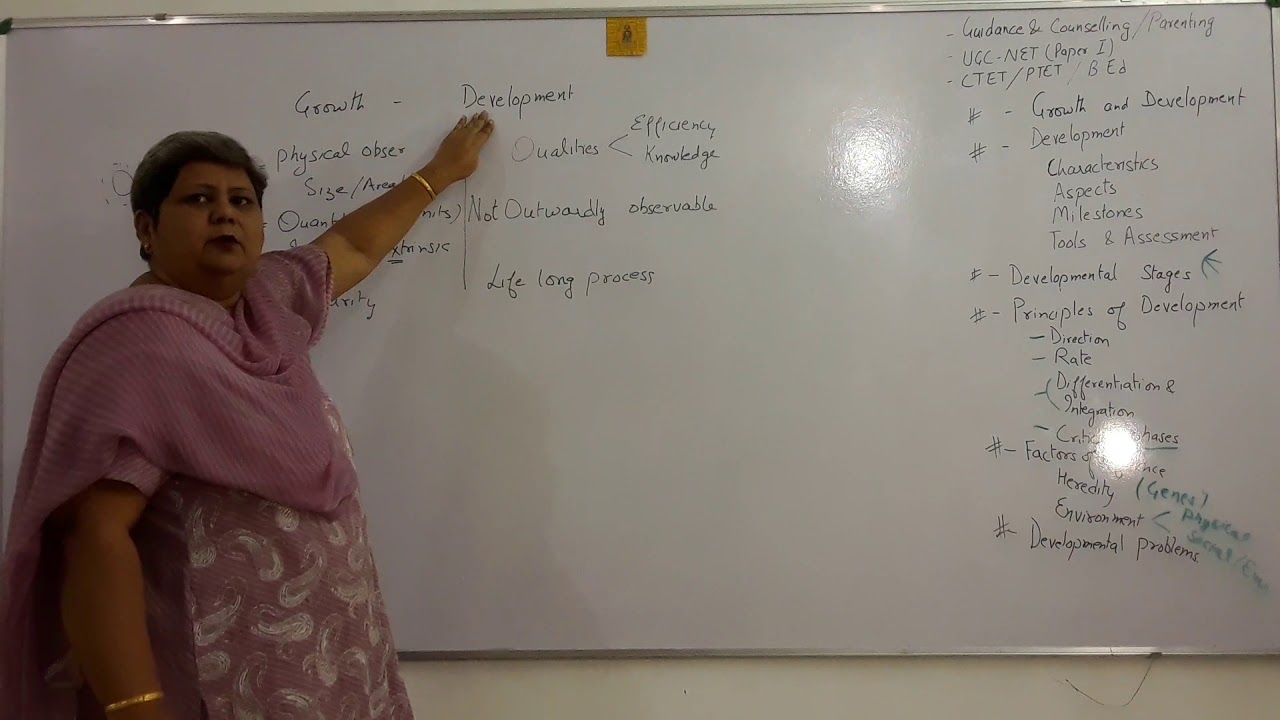 Growth - Development
physical obser
Size/Area
Quant
mits)
xtrinsic
urity
Qualities < Efficiency
Knowledge
Not Outwardly observable
Life long process
- Guidance & Counselling/Parenting
- UGC-NET (Paper I)
- CTET/PTET/B Ed
# - Growth and Development
# - Development
Characteristics
Aspects
Milestones
Tools & Assessment
# - Developmental Stages
# - Principles of Development
- Direction
- Rate
- Differentiation &
Integration
- Critic hases
# - Factors of nce
Heredity (Genes)
Environment < physical
social/Em
# - Developmental problems